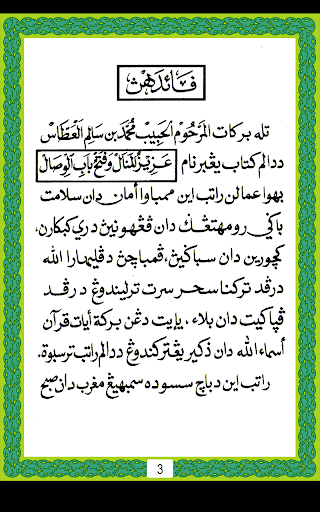 فائدهڽ
تله بركات المرحوم الحبيب محمد بن سالم العطاس
ددالم كتاب يڠبرنام عزيز المنال وفتح باب الوصال
بهوا عمالن راتب اين ممباوا أمان دان سلامت
باݢي رومهتڠݢ دان ڤڠهونيڽ دري كبكارن،
كچورين دان سباݢيڽ، ڤمباچڽ دڤليهارا الله
درڤد تركنا سحر سرت ترليندوڠ درڤد
ڤڽاكيت دان بلاء، يإيت دڠن بركة أيات قرآن
أسماء الله دان ذكير يڠتركندوڠ ددالم راتب ترسبوة.
راتب اين دباچ سسوده سمبهيڠ مغرب دان صبح
3